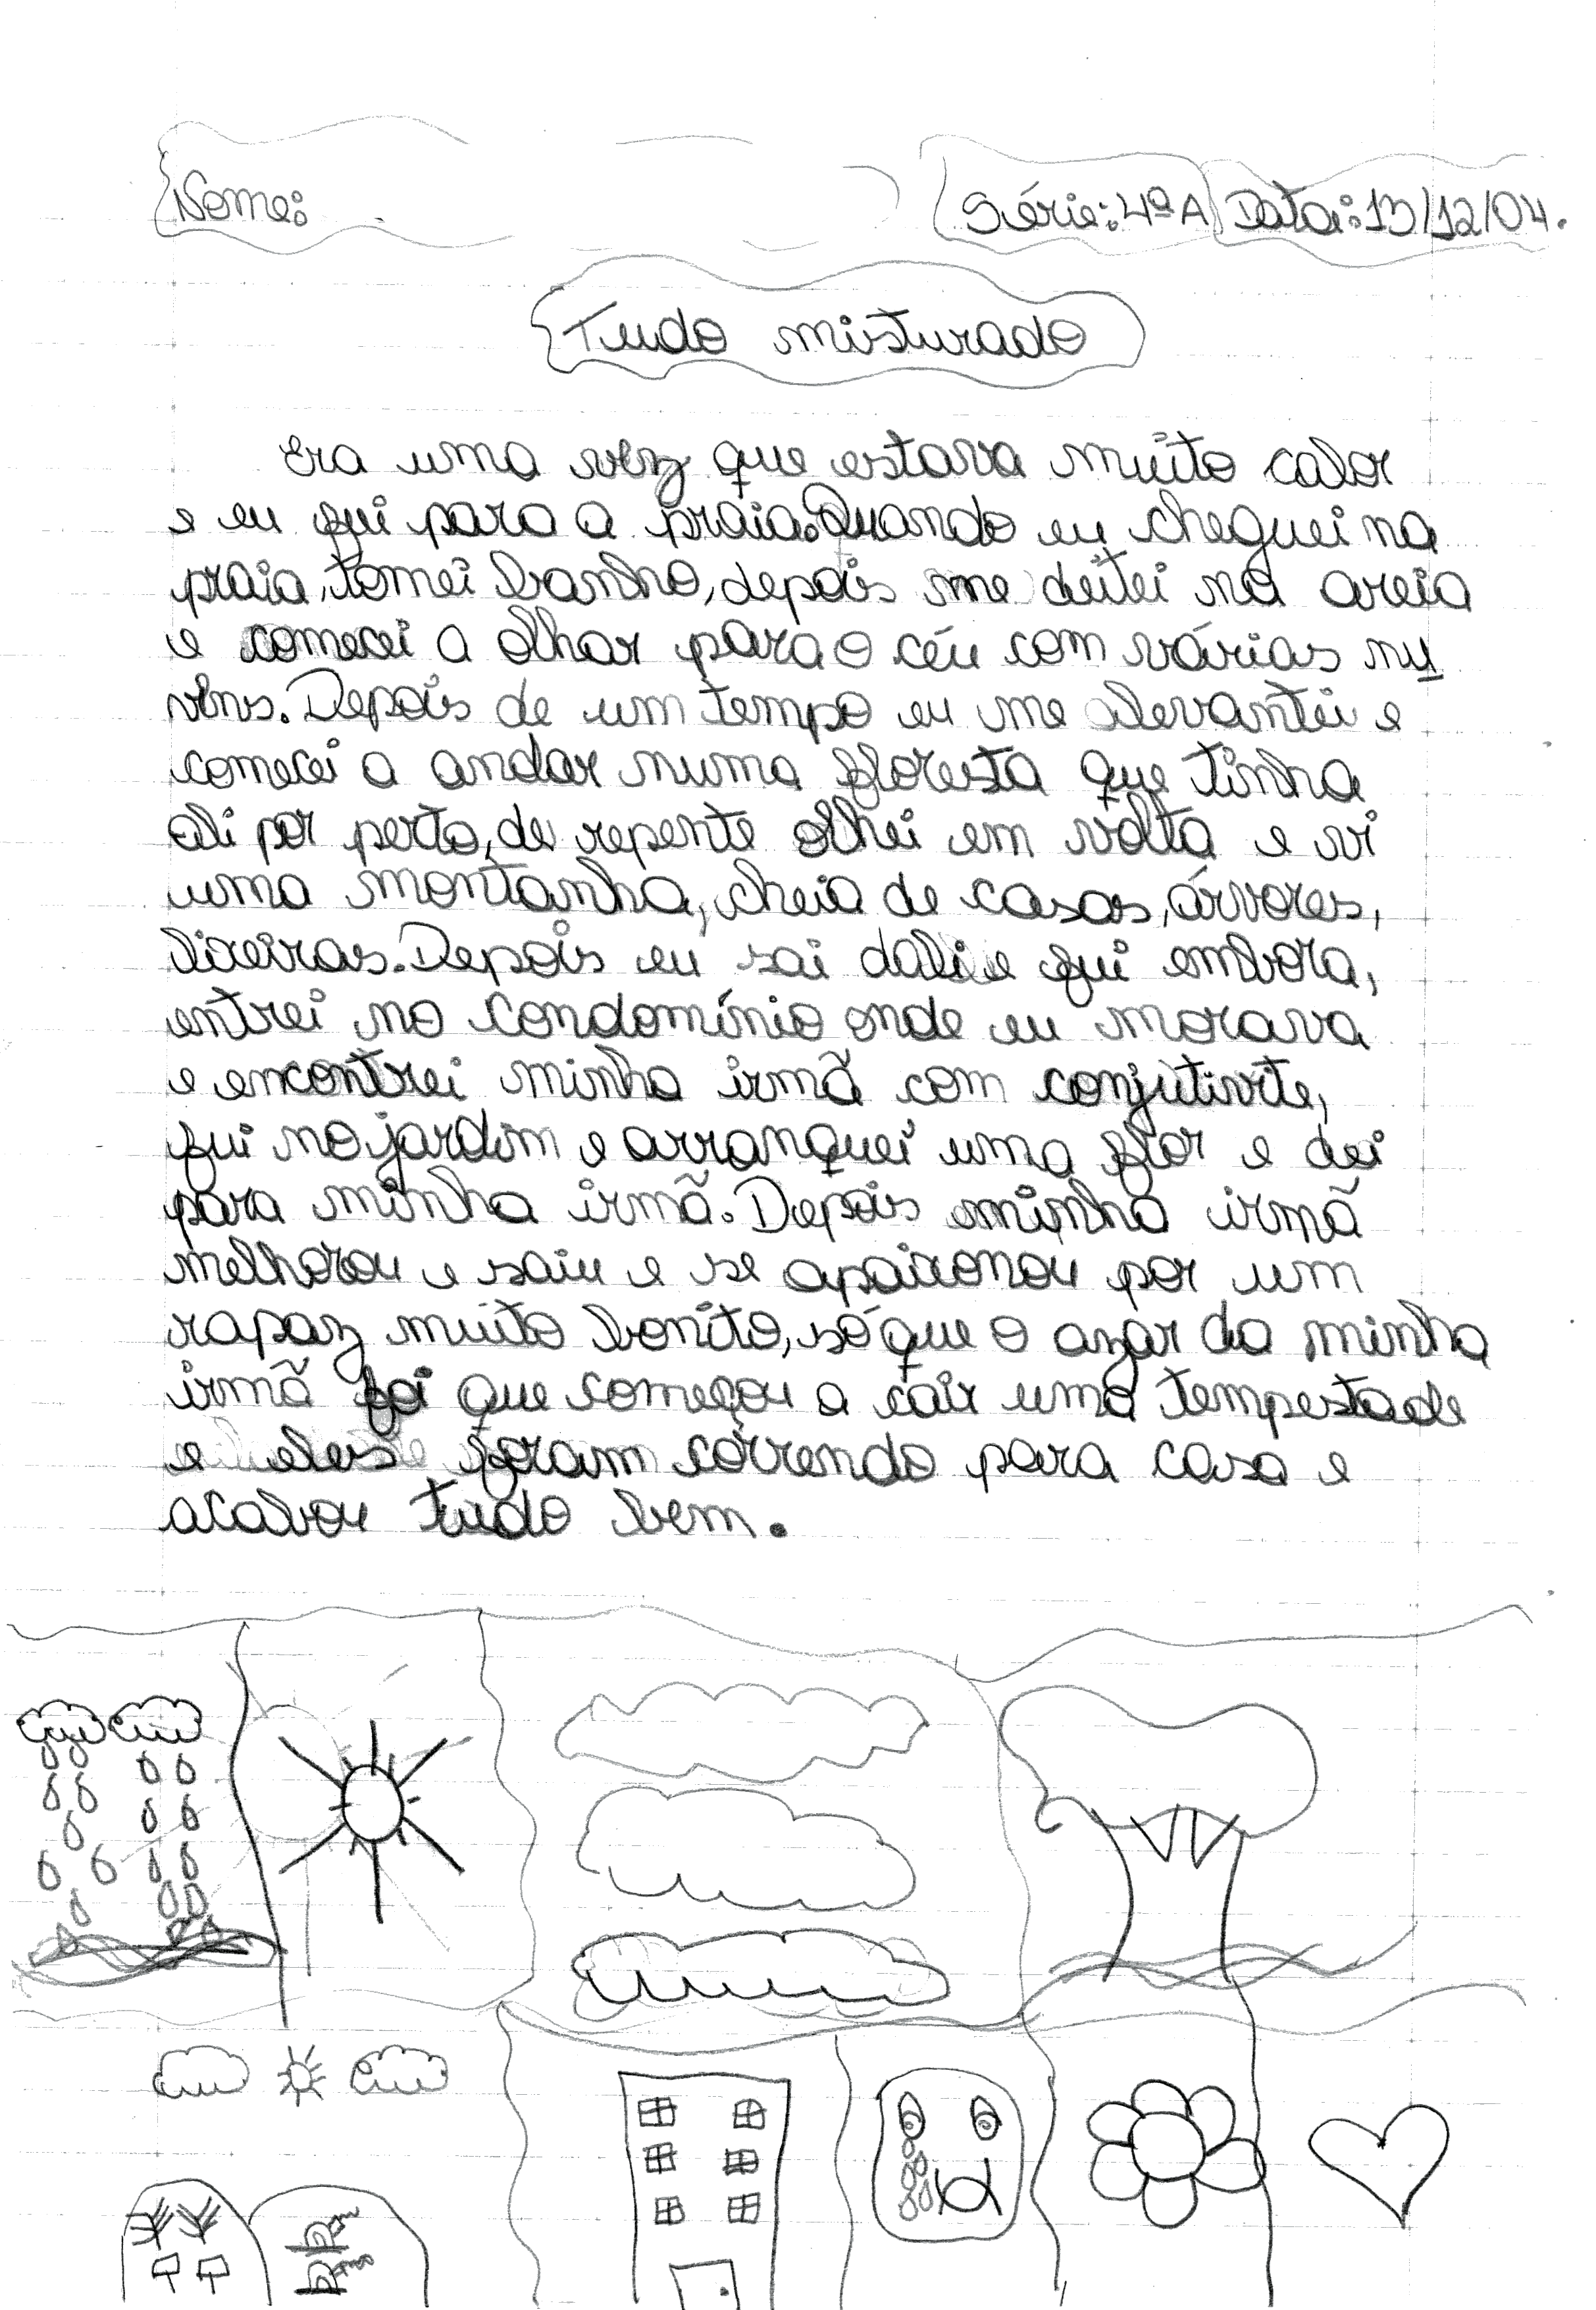 Nome:
Série: 4ª A Data: 13/12/04.
Tudo misturado
Era uma vez que estava muito calor
e eu fui para a praia. Quando eu cheguei na
praia, tomei banho, depois me deitei na areia
e comecei a olhar para o céu com várias nu
vens. Depois de um tempo eu me alevantei e
comecei a andar numa floresta que tinha
ali por perto, de repente olhei em volta e vi
uma montanha, cheia de casas, árvores,
lixeiras. Depois eu sai dali e fui embora,
entrei no condomínio onde eu morava
e encontrei minha irmã com conjutivite,
fui no jardim e arranquei uma flor e dei
para minha irmã. Depois minha irmã
melhorou e saiu e se apaixonou por um
rapaz muito bonito, só que o azar da minha
irmã foi que começou a cair uma tempestade
e eles foram correndo para casa e
acabou tudo bem.